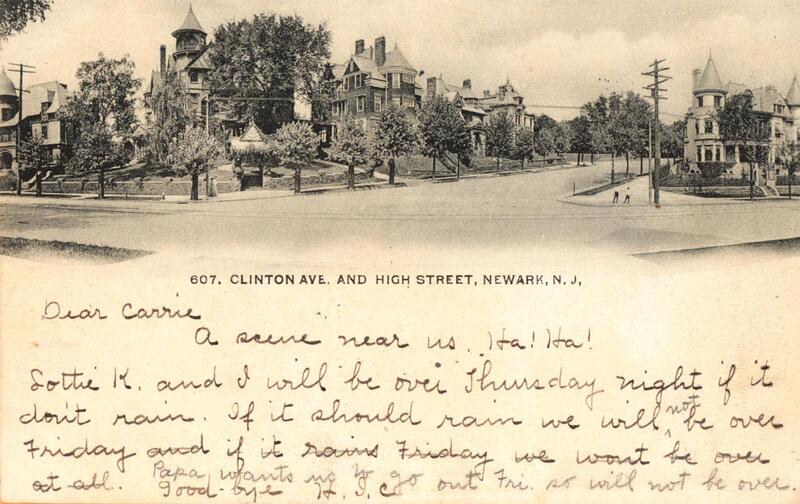 607. CLINTON AVE. AND HIGH STREET, NEWARK, N. J,
Dear Carrie
A scene near us. Ha! Ha!
Lottie K. and I will be over Thursday night if it
don't rain. If it should rain we will not be over
Friday and if it rains Friday we wont be over
at all. Papa wants us to go out Fri. so will not be over.
Good-bye H. I. C.